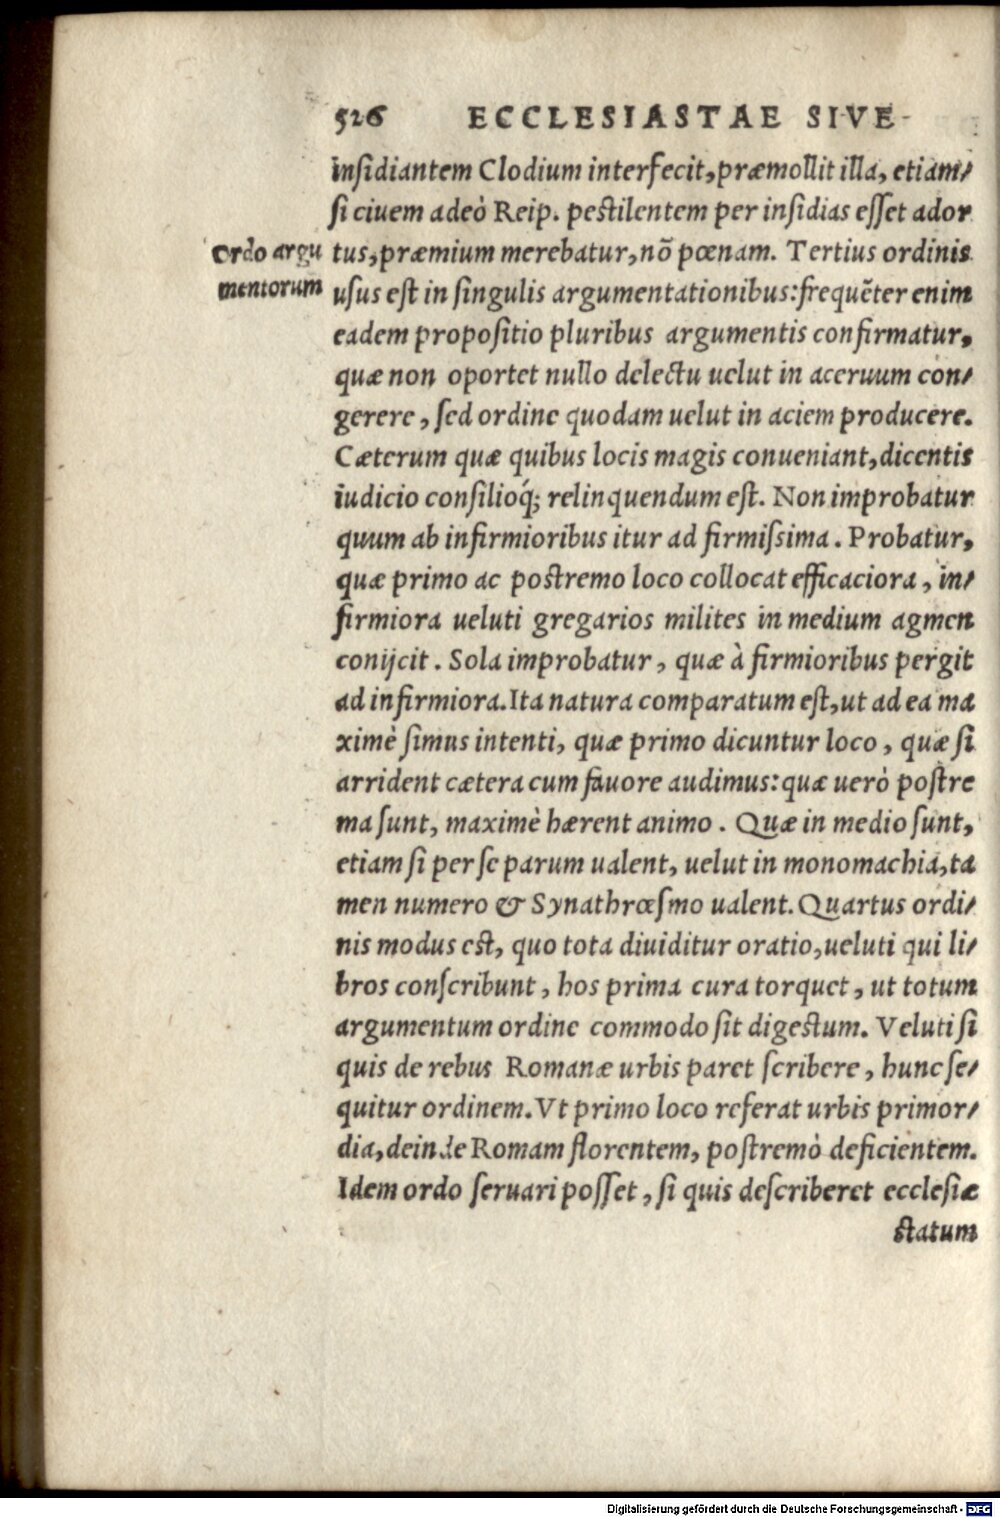 526 ECCLESIASTAE SIVE
insidiantem Clodium interfecit, præmollit illa, etiam/
si ciuem adeò Reip. pestilentem per insidias esset ador
Ordo argu
mentorum
tus, præmium merebatur, nõ pœnam. Tertius ordinis
usus est in singulis argumentationibus: frequẽter enim
eadem propositio pluribus argumentis confirmatur,
quæ non oportet nullo delectu uelut in aceruum con/
gerere, sed ordine quodam uelut in aciem producere.
Cæterum quæ quibus locis magis conueniant, dicentis
iudicio consilioq́; relinquendum est. Non improbatur
quum ab infirmioribus itur ad firmissima. Probatur,
quæ primo ac postremo loco collocat efficaciora, in/
firmiora ueluti gregarios milites in medium agmen
conijcit. Sola improbatur, quæ à firmioribus pergit
ad infirmiora. Ita natura comparatum est, ut ad ea ma
ximè simus intenti, quæ primo dicuntur loco, quæ si
arrident cætera cum fauore audimus: quæ uerò postre
ma sunt, maximè hærent animo. Quæ in medio sunt,
etiam si per se parum ualent, uelut in monomachia, ta
men numero & Synathrœsmo ualent. Quartus ordi/
nis modus est, quo tota diuiditur oratio, ueluti qui li/
bros conscribunt, hos prima cura torquet, ut totum
argumentum ordine commodo sit digestum. Veluti si
quis de rebus Romanæ urbis paret scribere, hunc se/
quitur ordinem. Vt primo loco referat urbis primor/
dia, deinde Romam florentem, postremò deficientem.
Idem ordo seruari posset, si quis describeret ecclesiæ
statum
Digitalisierung gefördert durch die Deutsche Forschungsgemeinschaft - DFG